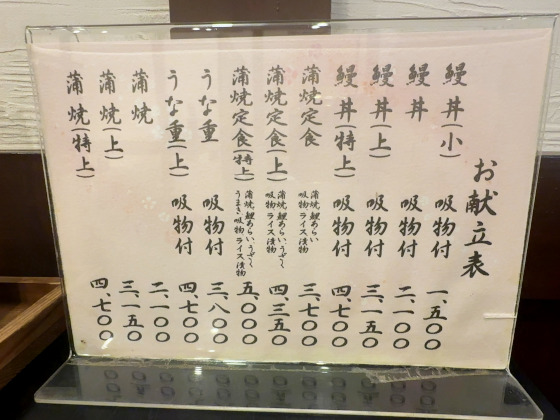 お献立表
鰻丼(小) 吸物付 一、五〇〇
鰻丼 吸物付 二、一〇〇
鰻丼(上) 吸物付 三、一五〇
鰻丼(特上) 吸物付 四、七〇〇
蒲焼定食 蒲焼 鯉あらい 吸物 ライス 漬物 三、七〇〇
蒲焼定食(上) 蒲焼 鯉あらい うざく 吸物 ライス 漬物 四、三五〇
蒲焼定食(特上) 蒲焼 鯉あらい うざく うまき 吸物 ライス 漬物 五、〇〇〇
うな重 吸物付 三、八〇〇
うな重(上) 吸物付 四、七〇〇
蒲焼 二、一〇〇
蒲焼(上) 三、一五〇
蒲焼(特上) 四、七〇〇